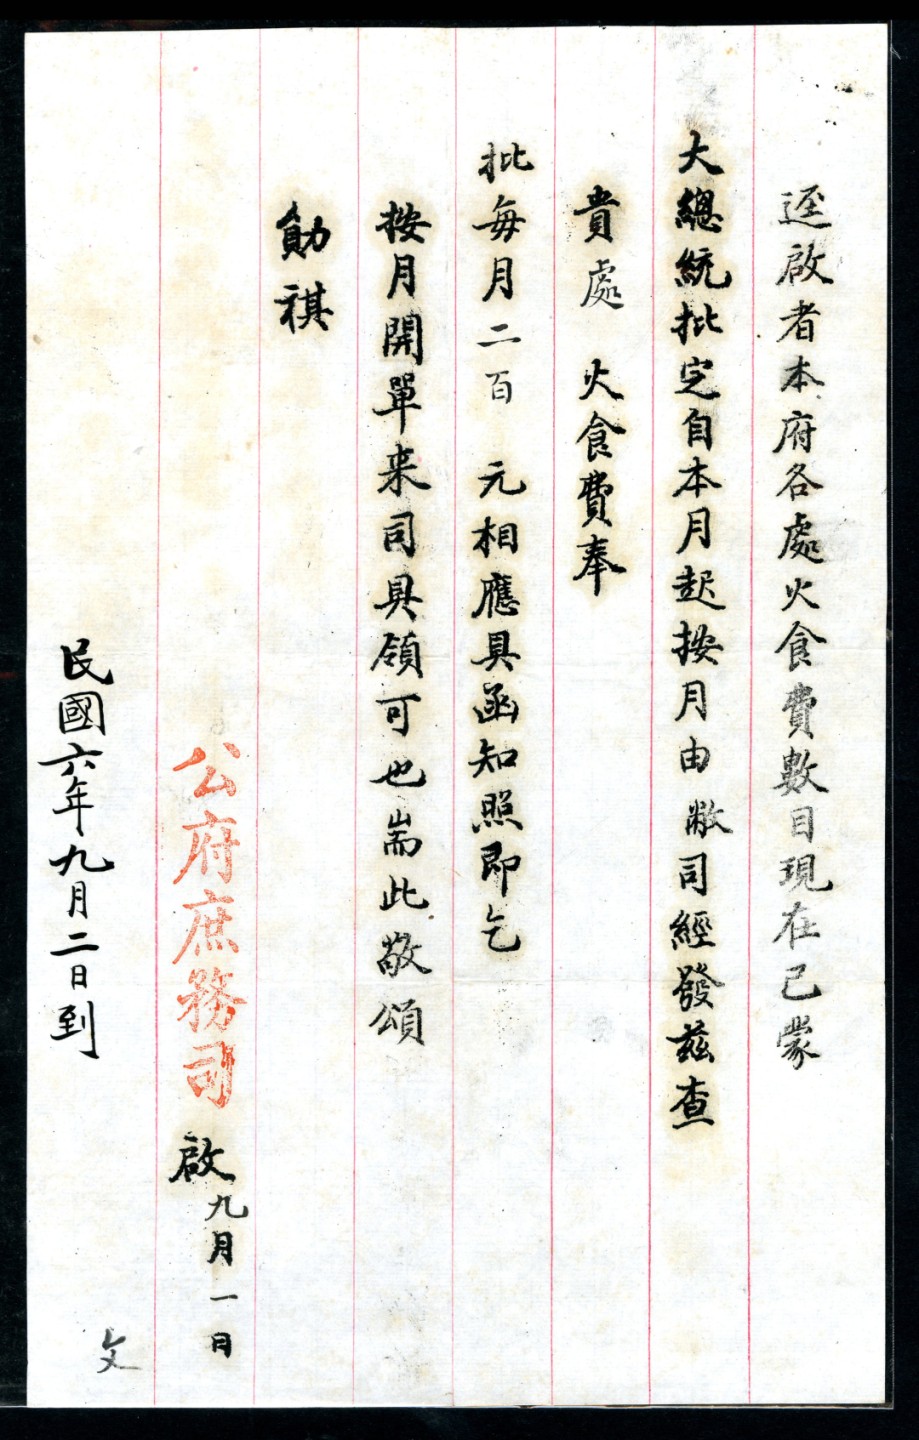 逕啟者本府各處火食費數目現在已蒙
大總統批定自本月起按月由敝司經發茲查
貴處 火食費奉
批每月二百 元相應具函知照即乞
按月開單来司具領可也耑此敬頌
勛祺
公府庶務司 啟 九月一日
民國六年九月二日到
文